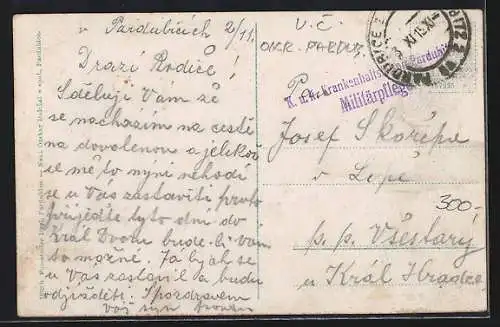 v Pardubicích 2/11.
Drazí Rodiče!
Sděluji Vám že
se nacházím na cestě
na dovolenou a jelikož
se mě to nyní nehodí
se u Vás zastaviti proto
přijeďte tyto dni do
Král Dvora bude-li Vám
to možné. Já bych se
u Vas zastavil a budu
odjížděti. S pozdravem
Váš syn
V.Č.
OKR. PARDUB.
PARDUBITZ 2
PARDUBICE 2
XI 15 XI
K. u. k. Krankenhaltstation Pardubitz
Militärpflege
Pan
Josef Skořepa
v Lípě
300-
p. p. Všestary
u Král Hradce